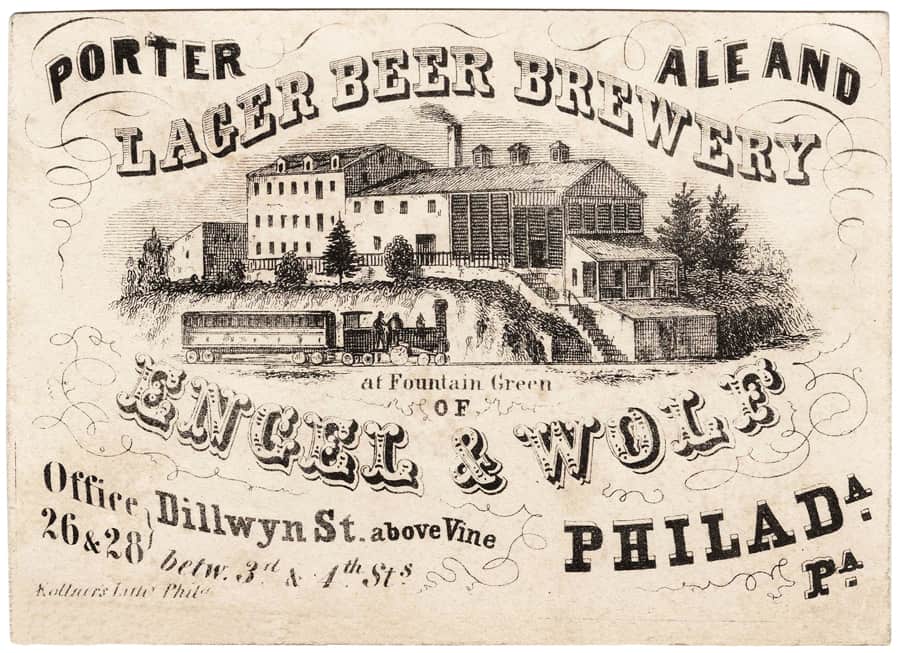 PORTER ALE AND
LAGER BEER BREWERY
at Fountain Green
OF
ENGEL & WOLF
Office 26 & 28 Dillwyn St. above Vine
betw. 3rd & 4th Sts
PHILADA.
PA
Kollner's Lith. Phila